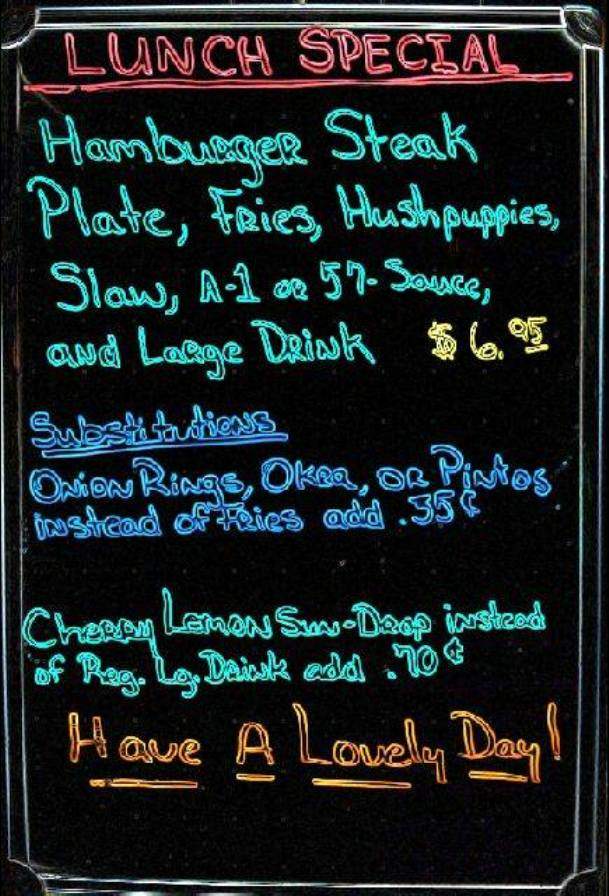 LUNCH SPECIAL
Hamburger Steak
Plate, Fries, Hushpuppies,
Slaw, A-1 or 57- Sauce,
and Large Drink $6.95
Substitutions
Onion Rings, Okra, or Pintos
instead of Fries add .35¢
Cherry Lemon Sun-Drop instead
of Reg. Lg. Drink add .70¢
Have A Lovely Day!